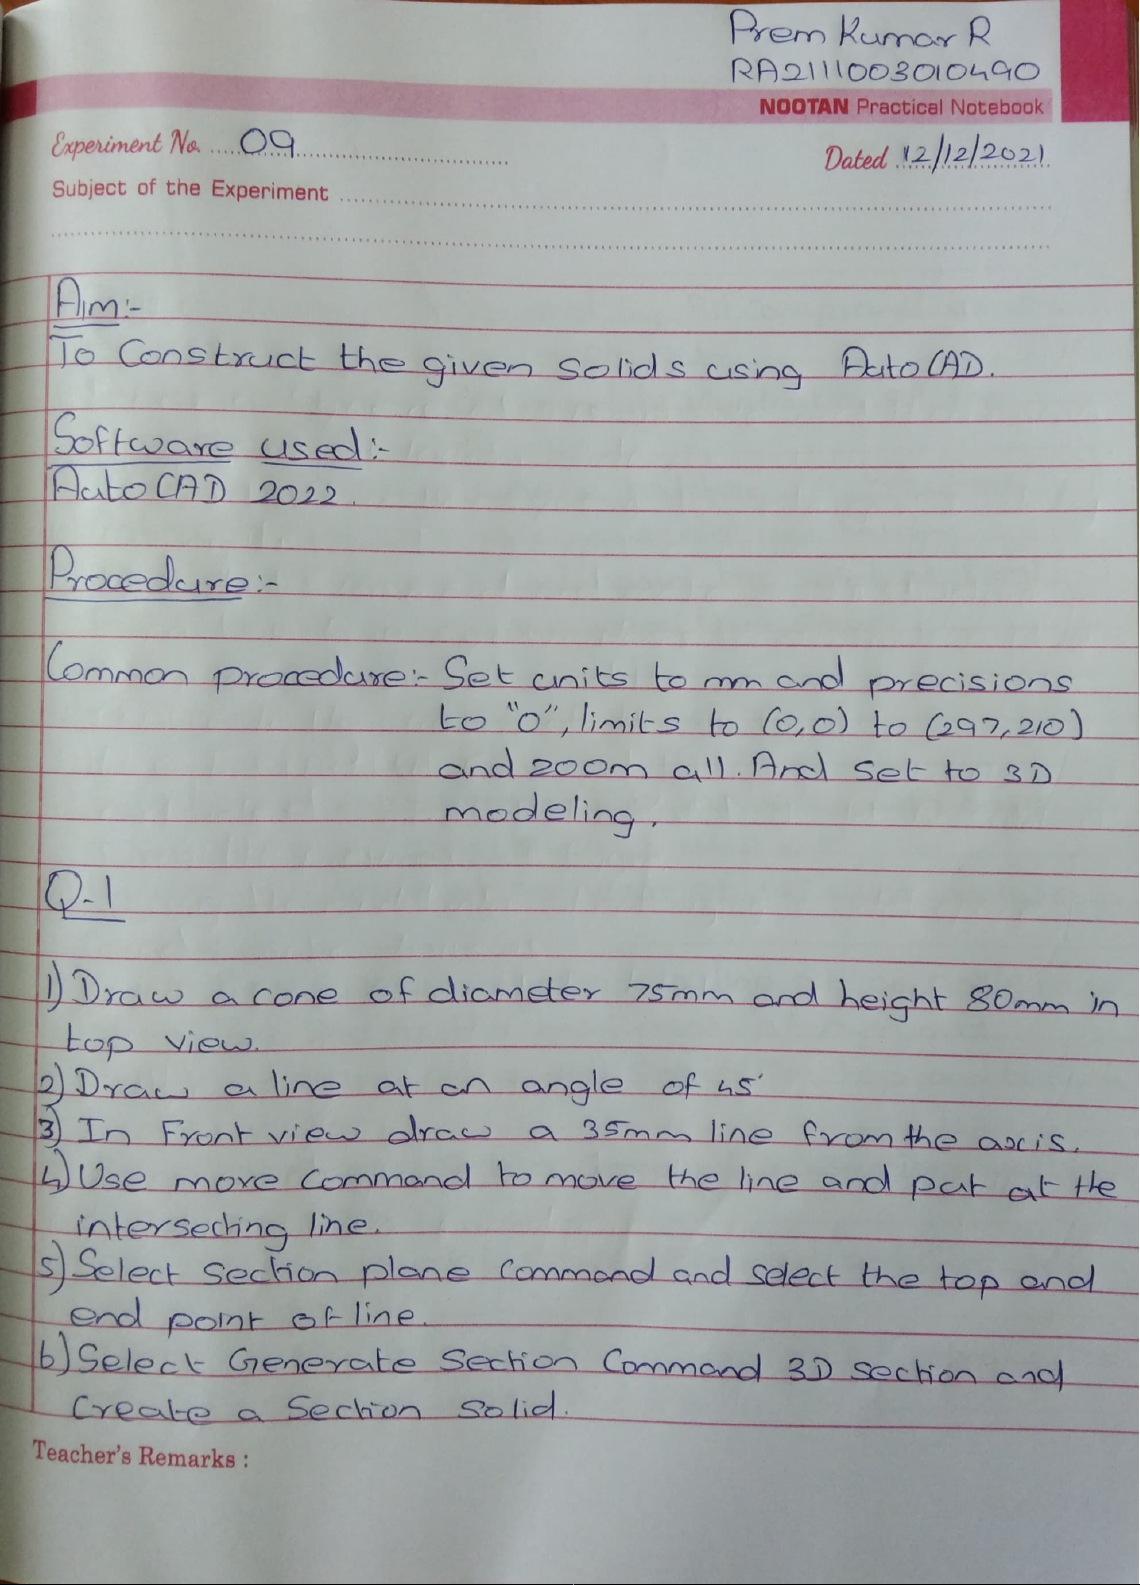 Prem Kumar R
RA2111003010490
NOOTAN Practical Notebook
Experiment No. 09
Dated 12/12/2021
Subject of the Experiment
Aim:-
To Construct the given solids using AutoCAD.
Software used:-
AutoCAD 2022.
Procedure:-
Common procedure:- Set units to mm and precisions
to "0", limits to (0,0) to (297,210)
and zoom all. And set to 3D
modeling.
Q-1
1) Draw a cone of diameter 75mm and height 80mm in
top view.
2) Draw a line at an angle of 45°
3) In Front view draw a 35mm line from the axis.
4) Use move command to move the line and put at the
intersecting line.
5) Select section plane command and select the top and
end point of line.
6) Select Generate Section Command 3D section and
create a section solid.
Teacher's Remarks :